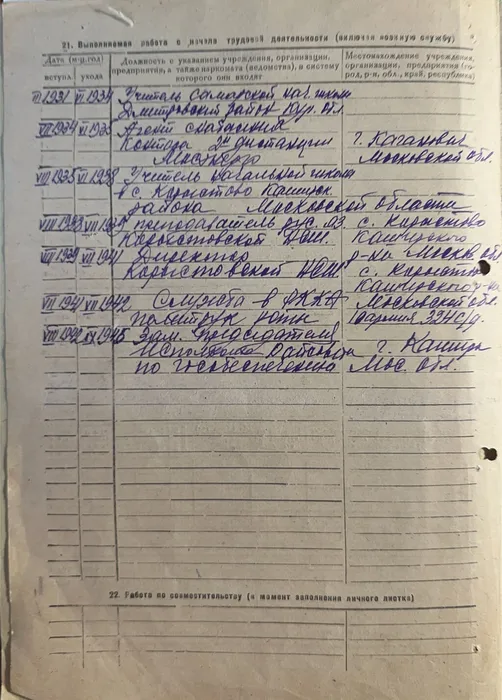 21. Выполняемая работа с начала трудовой деятельности (включая военную службу)
Дата (м-ц, год)
вступл. ухода
Должность с указанием учреждения, организации, предприятия, а также наркомата (ведомства), в систему которого они входят
Местонахождение учреждения, организации, предприятия (город, р-н, обл., край, республика)
1931 VI 1934 Учитель Самарской нач. школы
Дмитровский район Кур. обл.
VII 1934 VI 1935 Агент снабжения
Контора 2й дистанции г. Каганович
Московской обл.
VIII 1935 VIII 1938 Учитель начальной школы
в с. Корыстово Каширск.
района Московской области
VIII 1938 VIII 1939 преподаватель рус. яз. с. Корыстово
Корыстовской НСШ. Каширского
VIII 1939 VII 1941 Директор р-на Моск. обл
Корыстовской НСШ с. Корыстово
Каширского р-на
VII 1941 VII 1942 Служба в РККА Московской обл.
политрук роты
VIII 1942 1945 Зам. Председателя
Исполкома Райсовета г. Кашира
по гособеспечению Мос. обл.
22. Работа по совместительству (в момент заполнения личного листка)